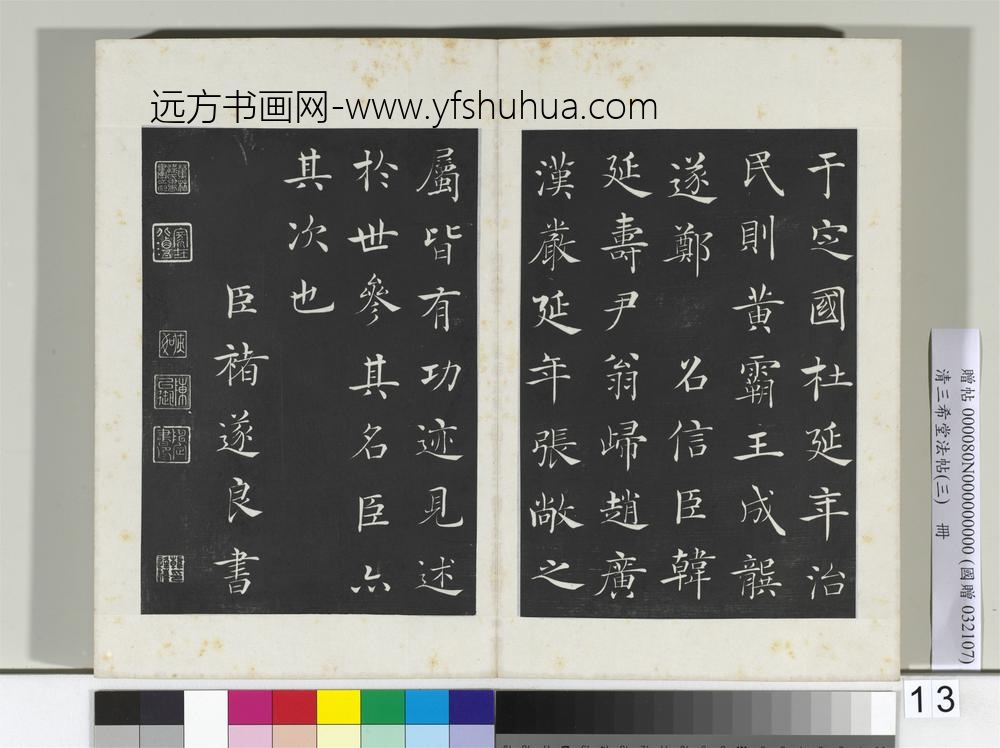 远方书画网-www.yfshuhua.com
于定國杜延年治
民則黃霸王成龔
遂鄭 召信臣韓
延壽尹翁歸趙廣
漢嚴延年張敞之
屬皆有功迹見述
於世參其名臣亦
其次也
臣褚遂良書
贈帖 0000080N000000000 (國贈 032107)
清三希堂法帖(三) 冊
13